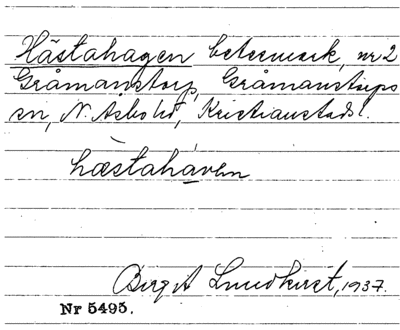 Hästahagen betesmark, nr 2
Gråmanstorp, Gråmanstorps
sn, N. Åsbo hd, Kristianstads l.
hæstahaven
Birgit Lundkvist, 1937.
Nr 5495.